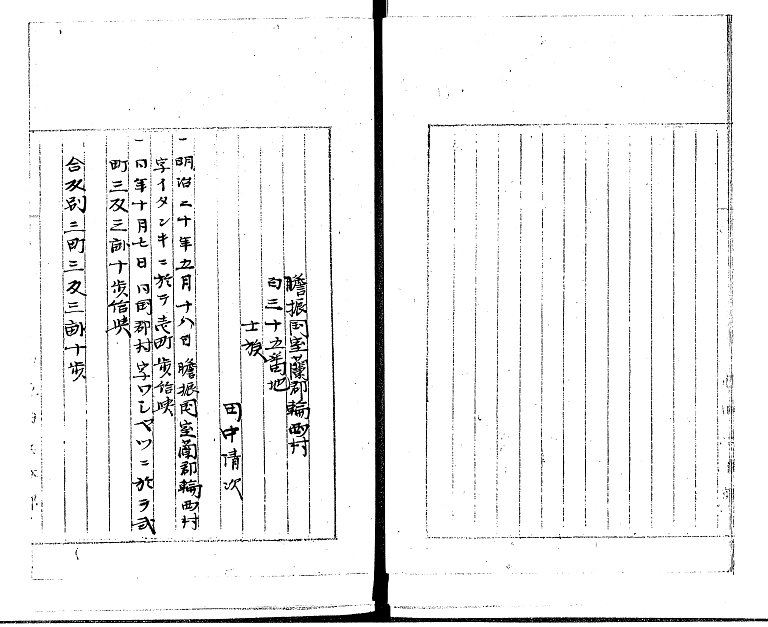 膽振国室蘭郡輪西村
百三十五番地
士族
田中清次
一明治二十年五月十八日膽振国室蘭郡輪西村
字イタンキニ於テ壱町歩付与
一同年十月七日同国郡村字ワシヤツニ於テ弐
町三反三畝十歩付与
合反別三町三反三畝十歩